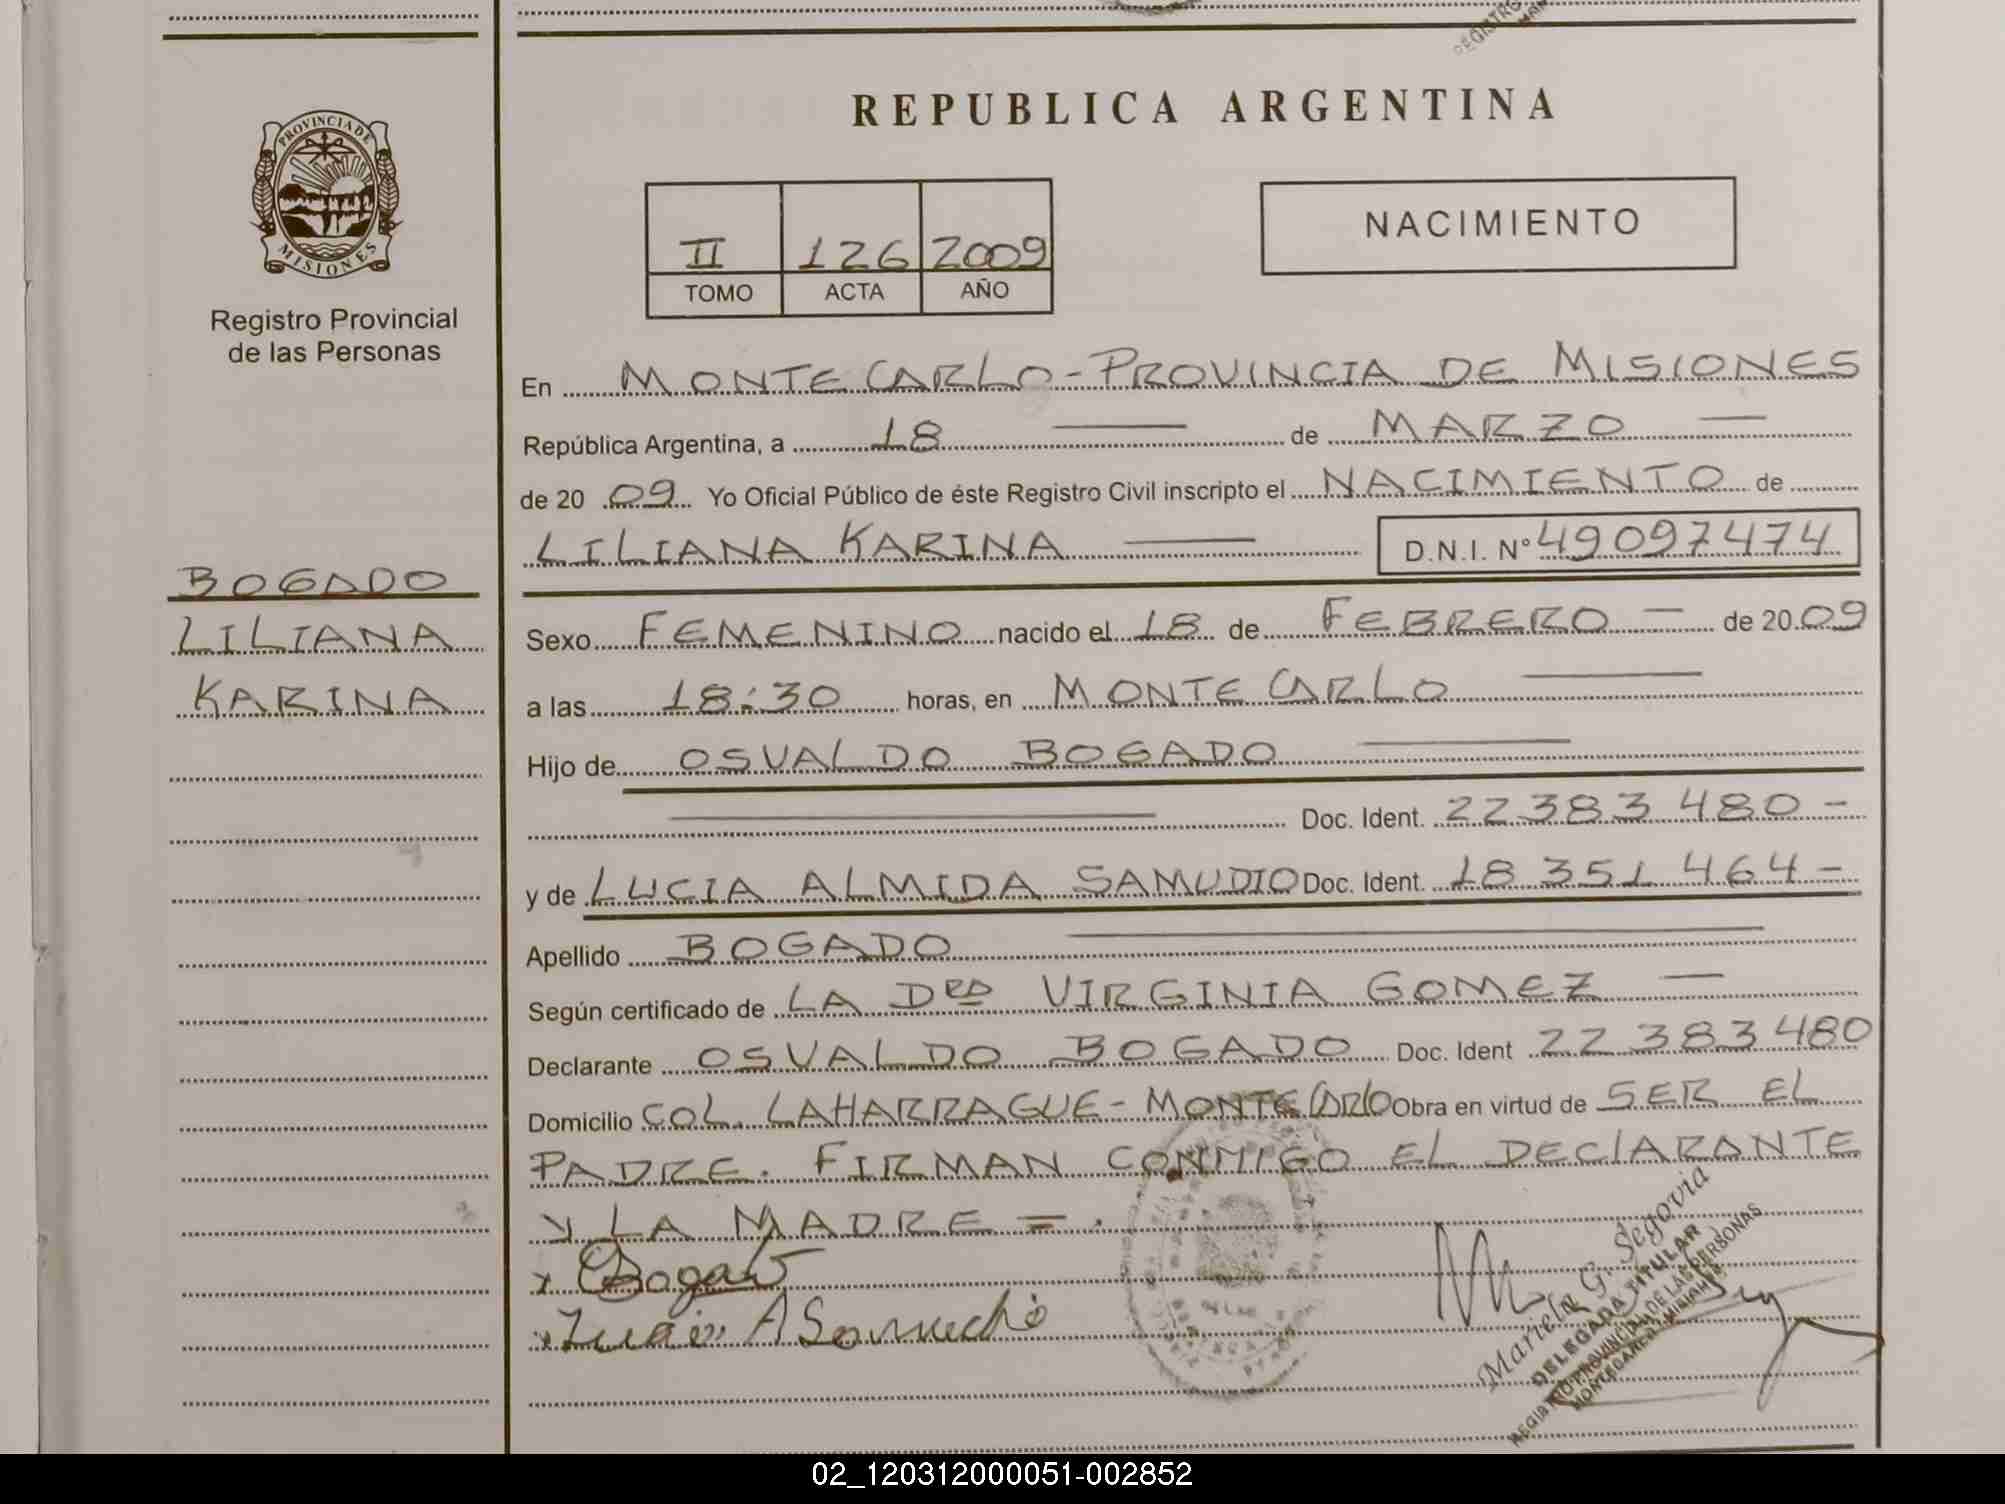 REPUBLICA ARGENTINA
PROVINCIA DE
MISIONES
Registro Provincial
de las Personas
NACIMIENTO
II 126 2009
TOMO ACTA AÑO
En MONTECARLO - PROVINCIA DE MISIONES
República Argentina, a 18 de MARZO
de 20 09 Yo Oficial Público de éste Registro Civil inscripto el NACIMIENTO de
LILIANA KARINA D.N.I. N° 49097474
BOGADO
LILIANA
KARINA
Sexo FEMENINO nacido el 18 de FEBRERO de 20 09
a las 18:30 horas, en MONTECARLO
Hijo de OSVALDO BOGADO
Doc. Ident. 22 383 480 -
y de LUCIA ALMIDA SAMUDIO Doc. Ident. 18 351 464 -
Apellido BOGADO
Según certificado de LA DRA VIRGINIA GOMEZ
Declarante OSVALDO BOGADO Doc. Ident 22 383 480
Domicilio COL. LAHARRAGUE - MONTECARLO Obra en virtud de SER EL
PADRE. FIRMAN CONMIGO EL DECLARANTE
Y LA MADRE = .
x OBogado
Mariela G. Segovia
DELEGADA TITULAR
REGISTRO PROVINCIAL DE LAS PERSONAS
02_120312000051-002852